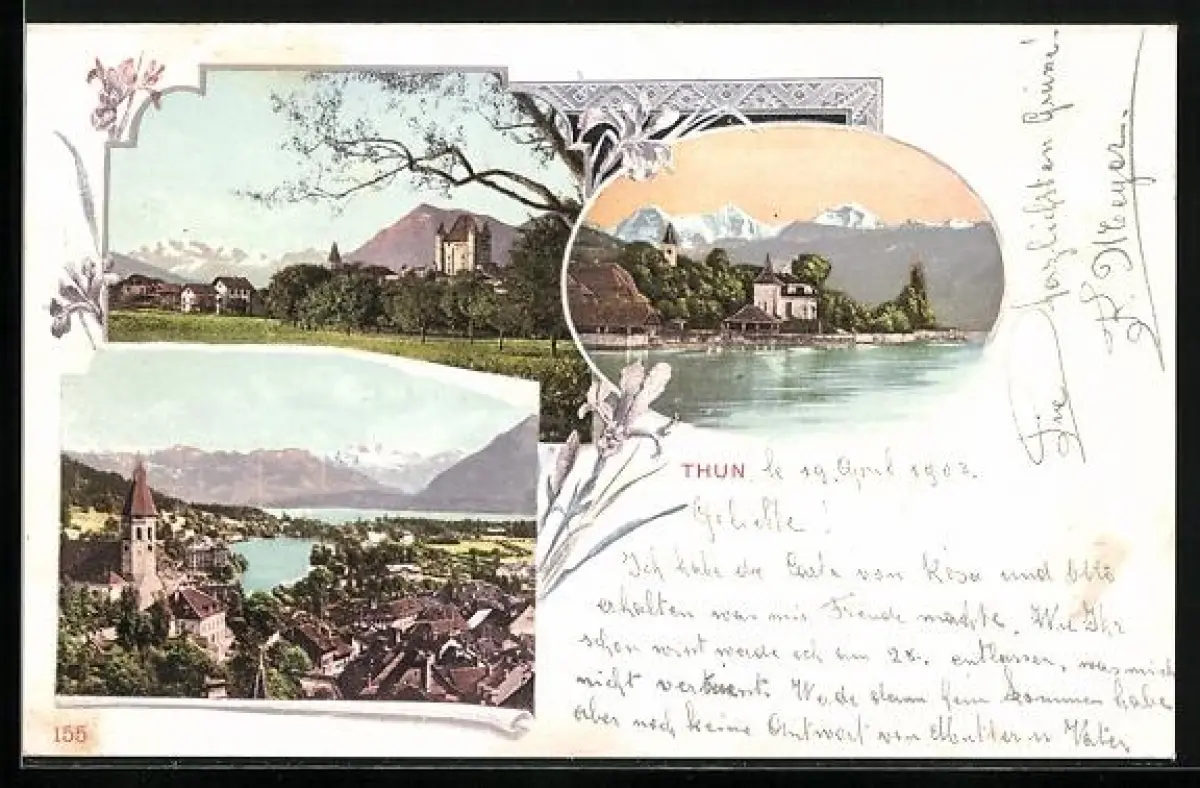 THUN. le 19. April 1903.
Geliebte!
Ich habe die Carte von Rösa und Otto
erhalten was mir Freude machte. Wie Ihr
schon wisst werde ich am 28. entlassen, was mich
nicht Werde dann heim kommen habe
aber noch keine Antwort von Mutter u Vater
Die herzlichsten Grüsse.
F. Meyer.
155